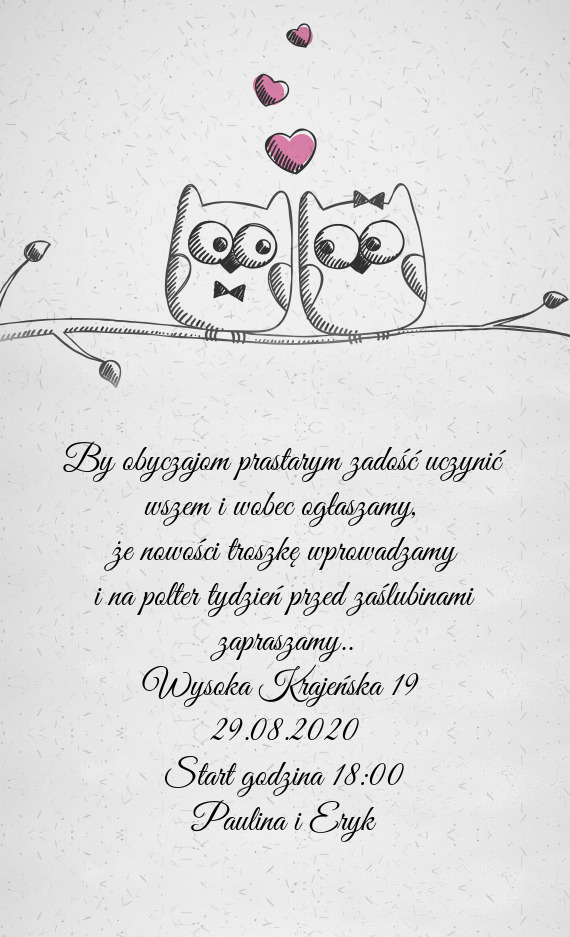 By obyczajom prastarym zadość uczynić
wszem i wobec ogłaszamy,
że nowości troszkę wprowadzamy
i na polter tydzień przed zaślubinami
zapraszamy..
Wysoka Krajeńska 19
29.08.2020
Start godzina 18:00
Paulina i Eryk